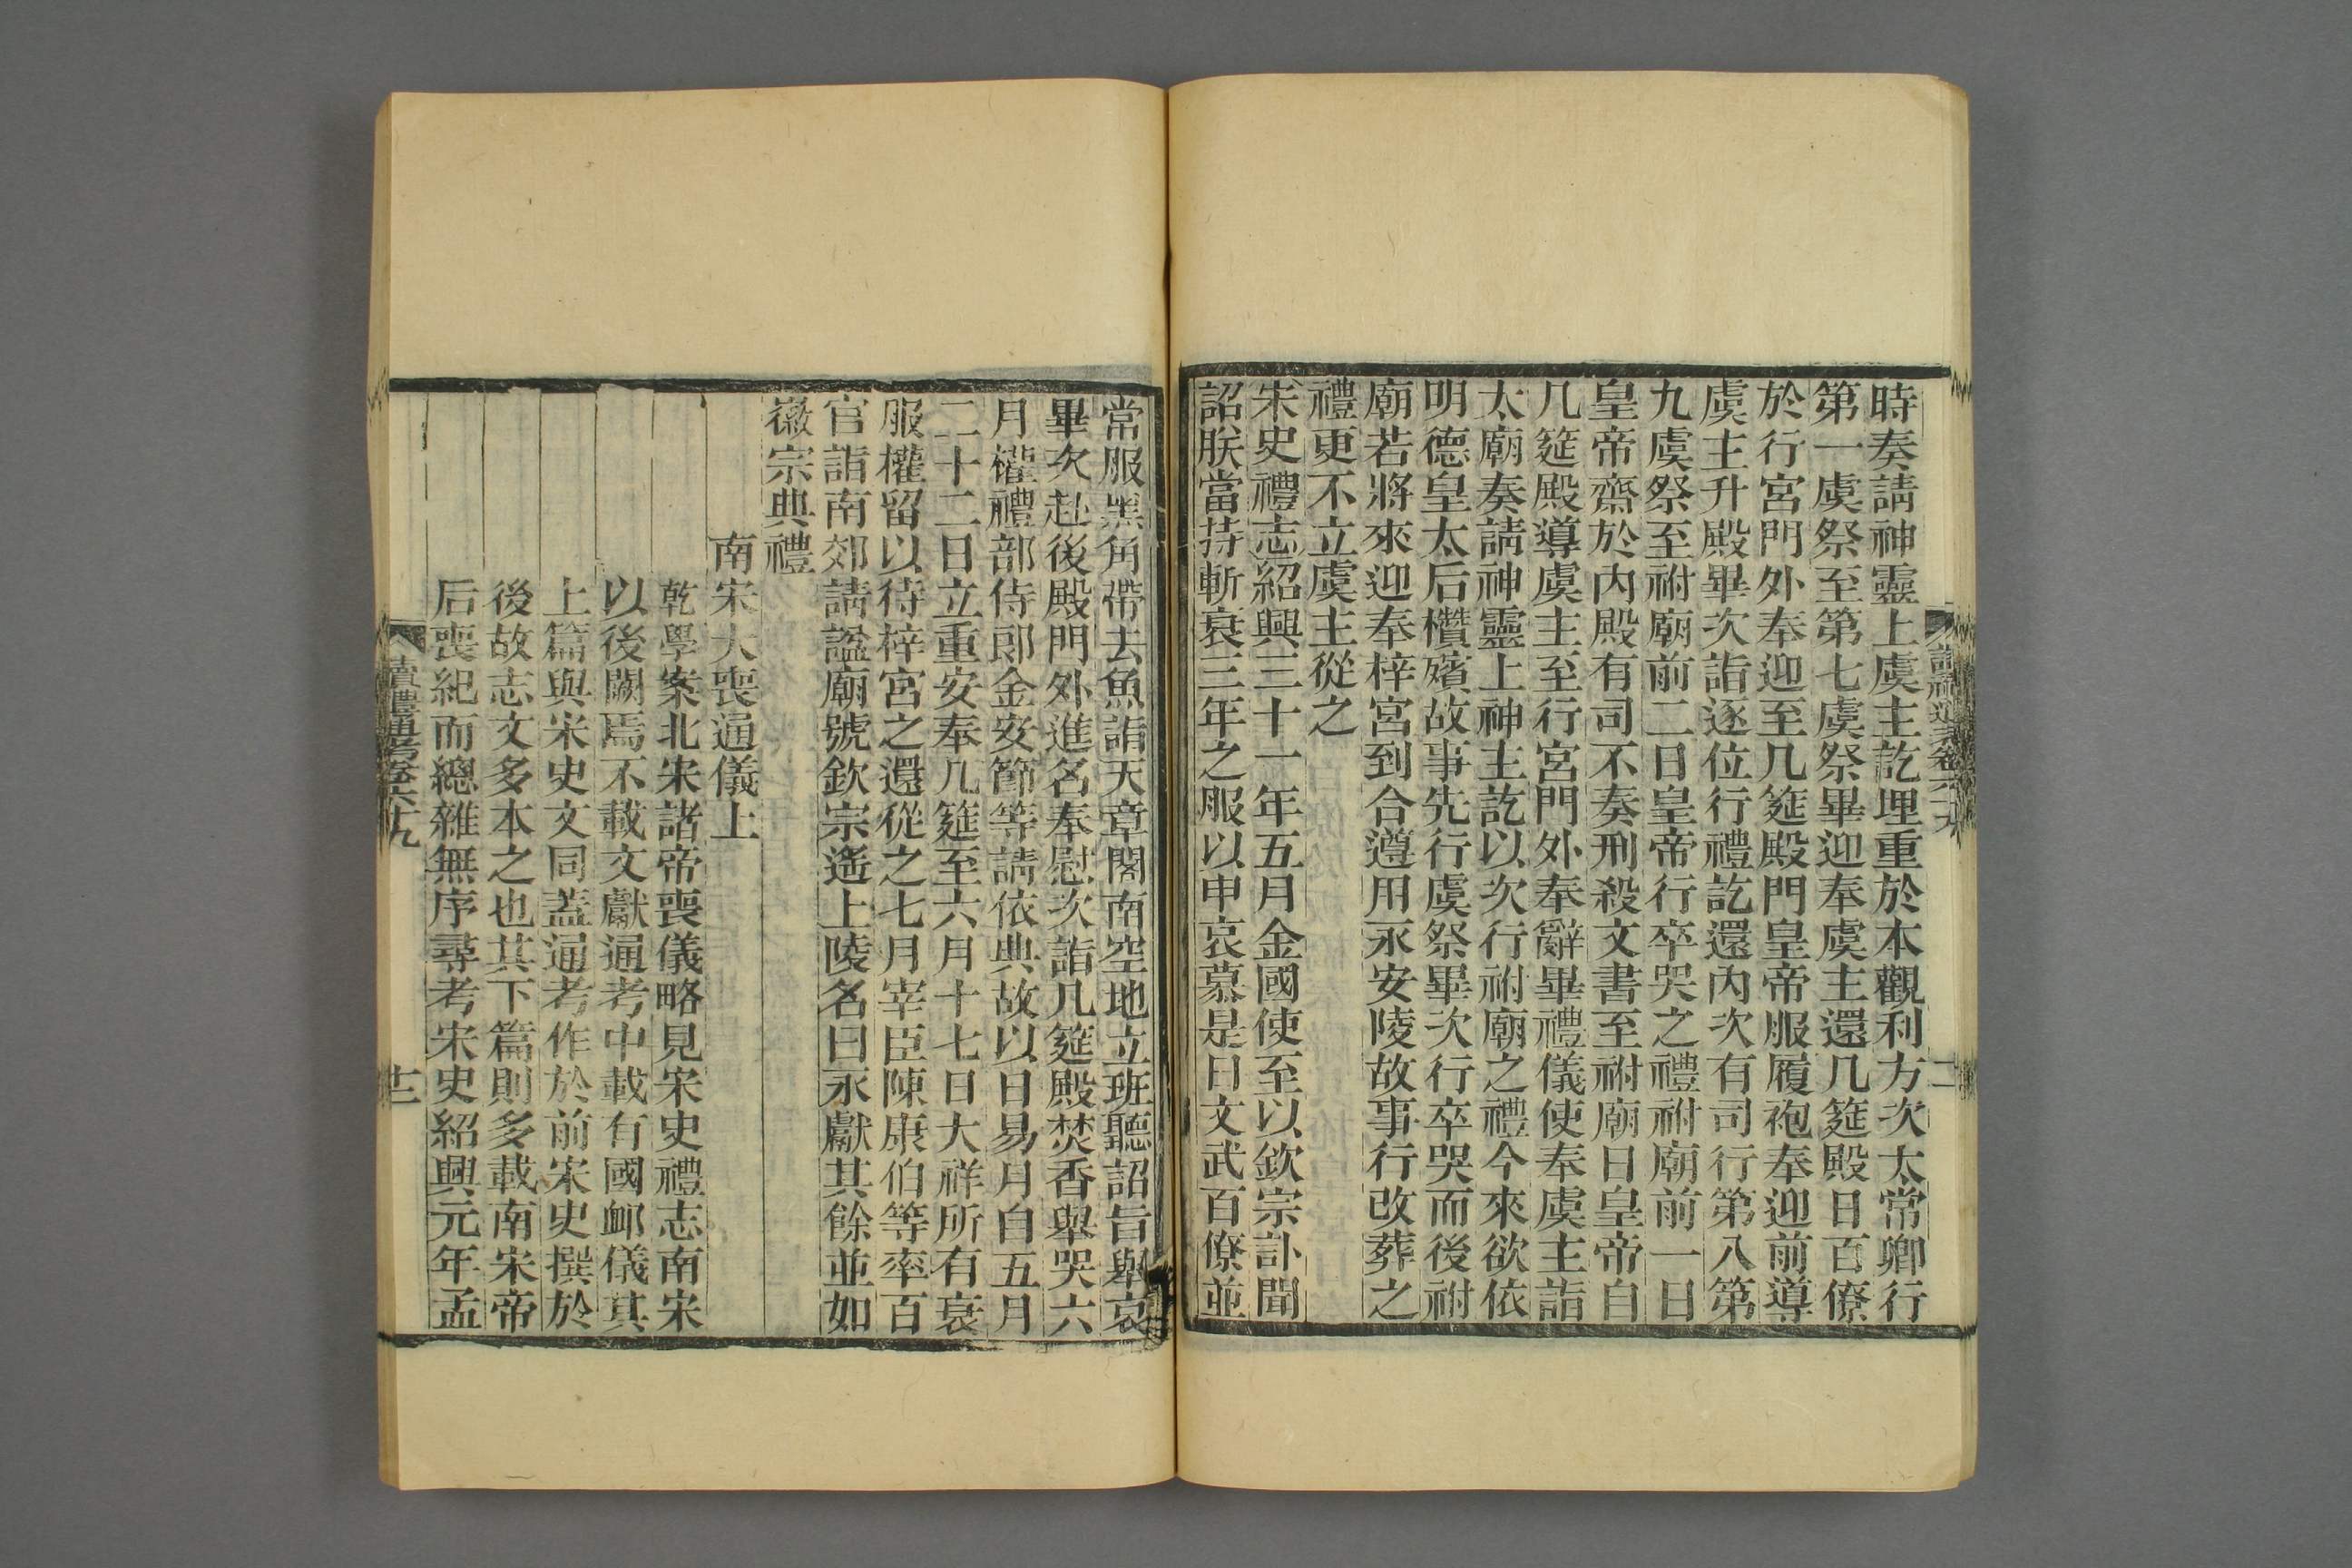 時奏請神靈上虞主訖埋重於本觀利方次太常卿行
第一虞祭至第七虞祭畢迎奉虞主還几筵殿日百僚
於行宮門外奉迎至几筵殿門皇帝服履袍奉迎前導
虞主升殿畢次詣逐位行禮訖還內次有司行第八第
九虞祭至祔廟前二日皇帝行卒哭之禮祔廟前一日
皇帝齋於內殿有司不奏刑殺文書至祔廟日皇帝自
几筵殿導虞主至行宮門外奉辭畢禮儀使奉虞主詣
太廟奏請神靈上神主訖以次行祔廟之禮今來欲依
明德皇太后欑殯故事先行虞祭畢次行卒哭而後祔
廟若將來迎奉梓宮到合遵用永安陵故事行改葬之
禮更不立虞主從之
宋史禮志紹興三十一年五月金國使至以欽宗訃聞
詔朕當持斬衰三年之服以申哀慕是日文武百僚並
常服黑角帶去魚詣天章閣南空地立班聽詔旨舉哀
畢次赴後殿門外進名奉慰次詣几筵殿焚香舉哭六
月權禮部侍郎金安節等請依典故以日易月自五月
二十二日立重安奉几筵至六月十七日大祥所有衰
服權留以待梓宮之還從之七月宰臣陳康伯等率百
官詣南郊請諡廟號欽宗遙上陵名曰永獻其餘並如
徽宗典禮
南宋大喪通儀上
乾學案北宋諸帝喪儀略見宋史禮志南宋
以後闕焉不載文獻通考中載有國卹儀其
上篇與宋史文同蓋通考作於前宋史撰於
後故志文多本之也其下篇則多載南宋帝
后喪紀而總雜無序尋考宋史紹興元年孟
讀禮通考卷六十九
十二